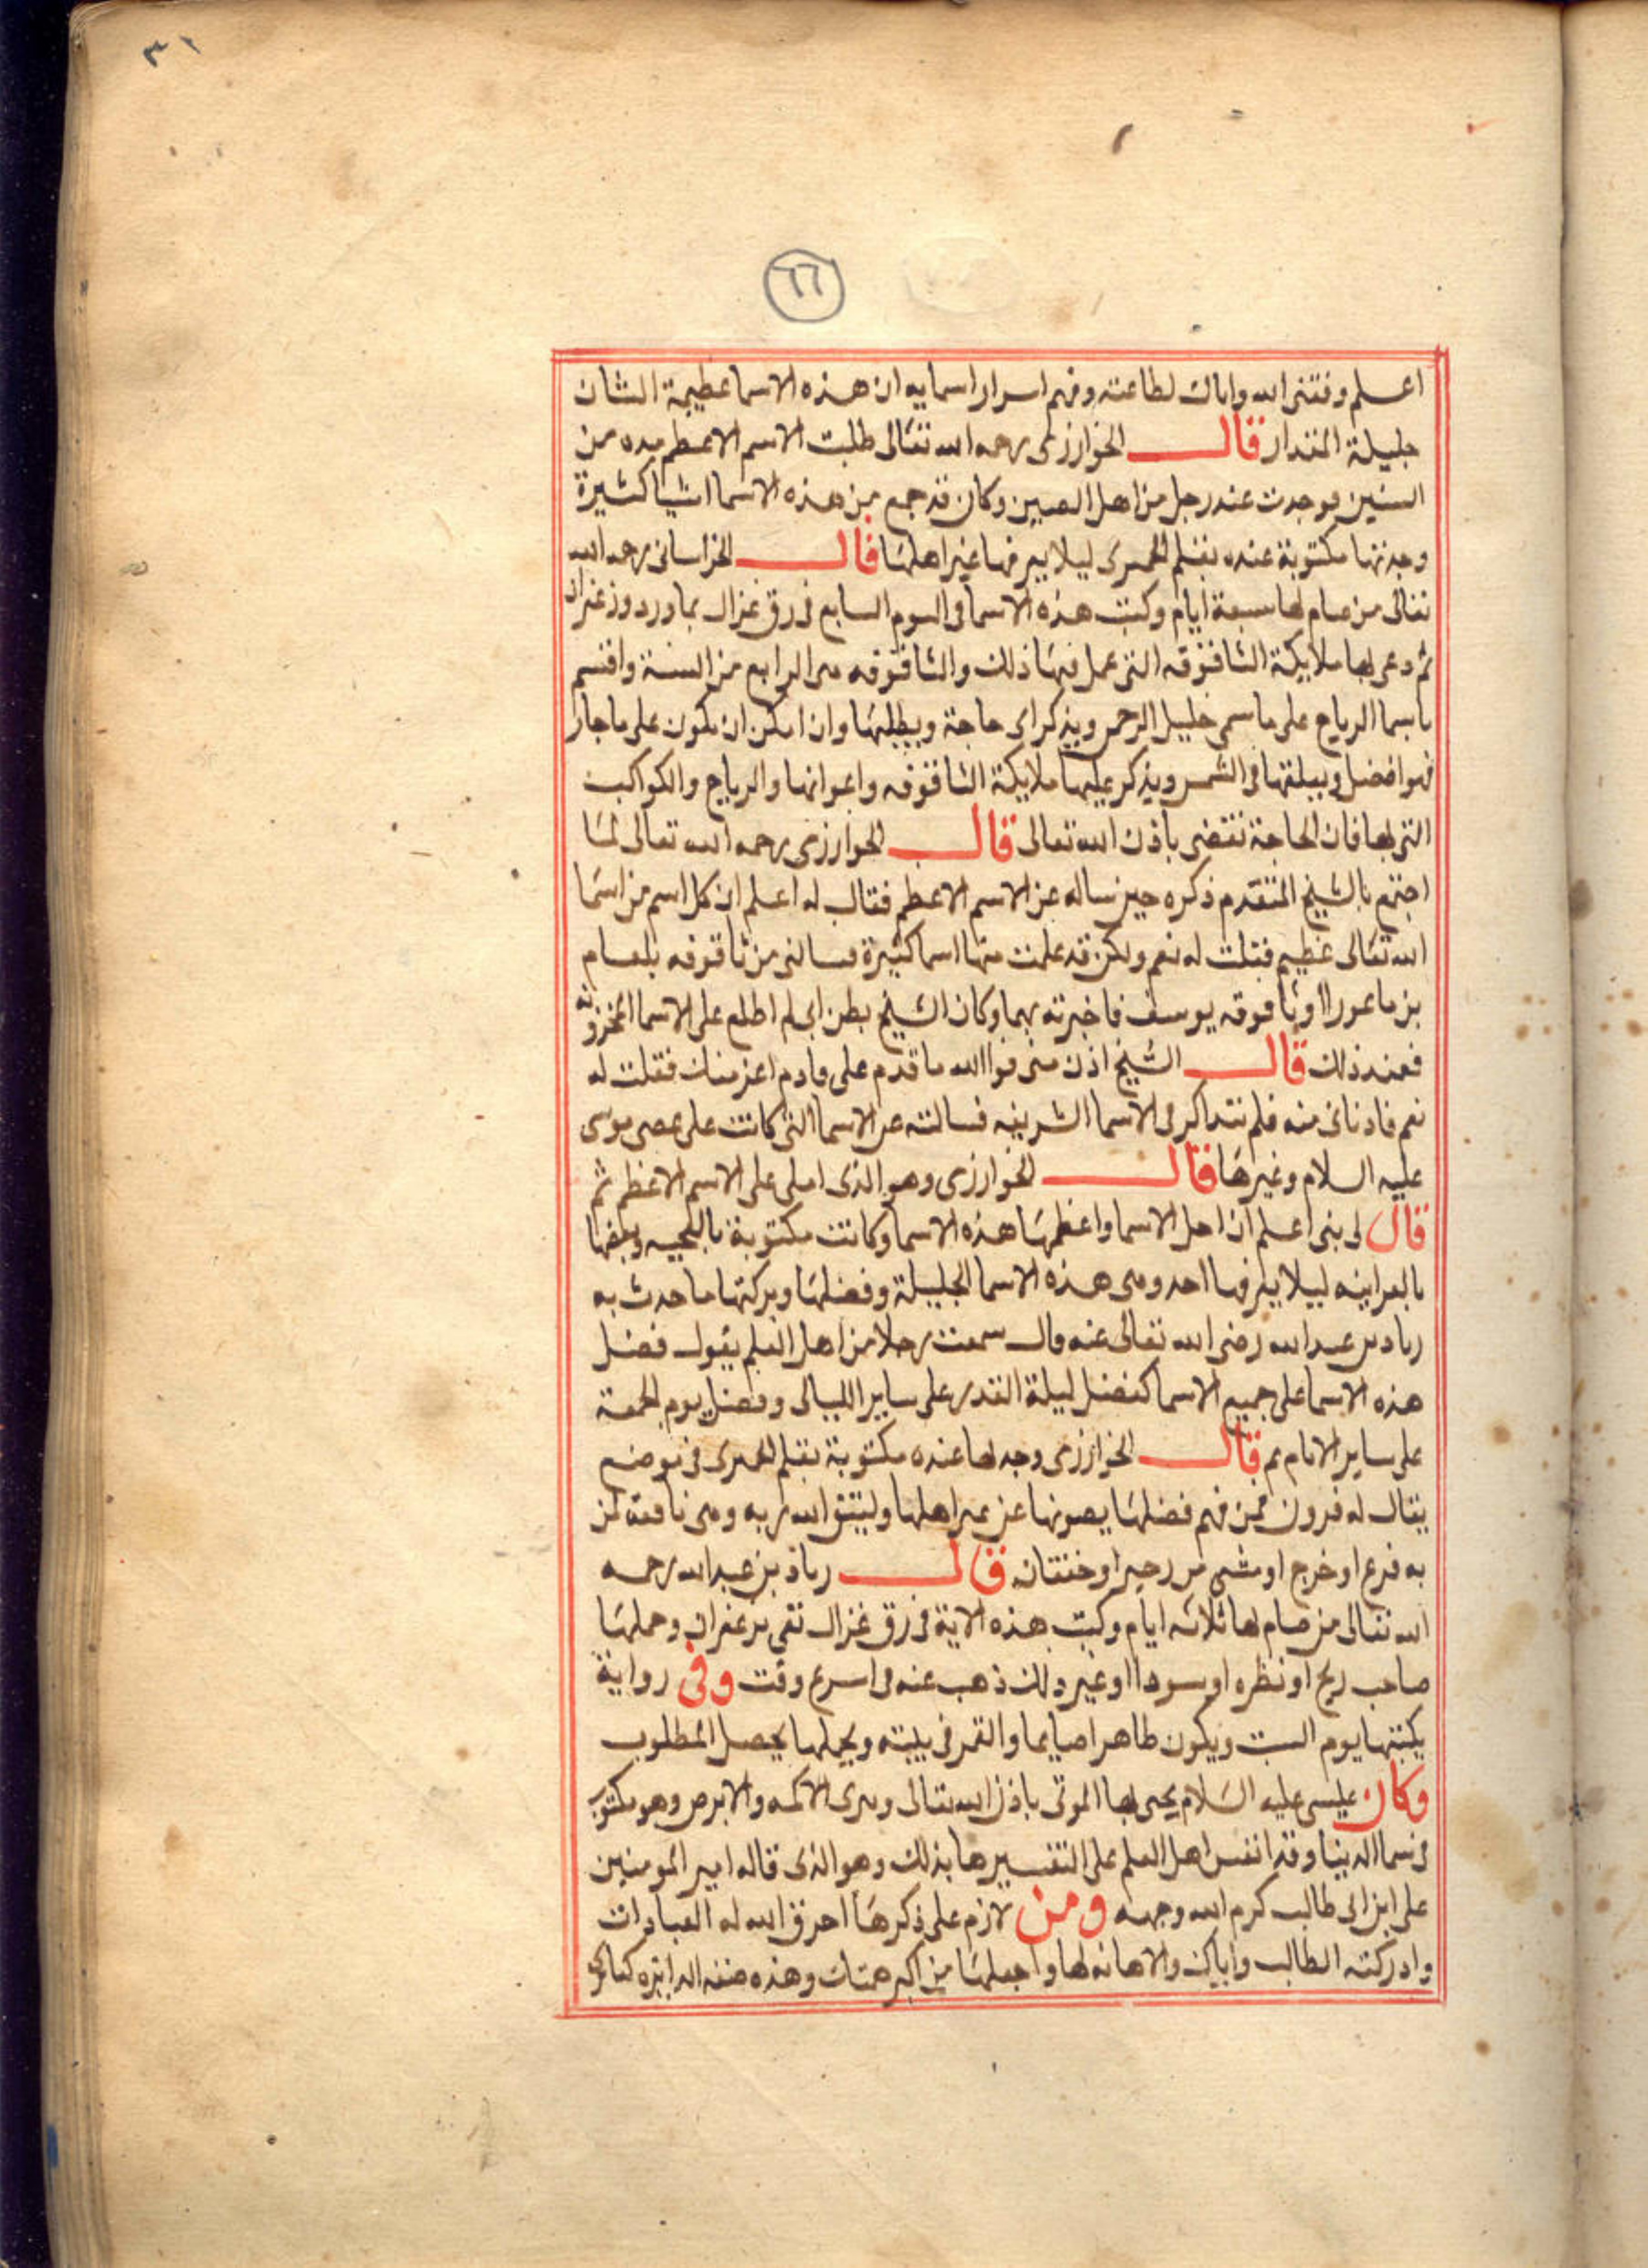 ٣١
٦٦
اعلم وفقنى الله واياك لطاعته وفهم اسرار اسمايه ان هذه الاسما عظيمة الشان
جليلة المقدار قال الخوارزمى رحمه الله تعالى طلبت الاسم الاعظم مده من
السنين فوجدت عند رجل من اهل الصين وكان قد جمع من هذه الاسما اشيا كثيرة
وجدتها مكتوبة عنده بقلم الحميرى ليلا يعرفها غير اهلها قال الخراسانى رحمه الله
تعالى من صام لها سبعة ايام وكتب هذه الاسما فى اليوم السابع فى رق غزال بماورد وزعفران
ثم دعى بها ملايكة الشاقوقه التى عمل فيها ذلك والشاقوقه هى الرابع من السنة واقسم
باسما الرياح على ماسمى خليل الرحمن ويذكر اى حاجة ويطلبها وان امكن ان يكون على
فهو افضل ويعلقها فى الشمس ويذكر عليها ملايكة الشاقوقه واعوانها والرياح والكواكب
التى لها فان الحاجة تقضى باذن الله تعالى قال الخوارزمى رحمه الله تعالى لما
اجتمع بالشيخ المتقدم ذكره حين ساله عن الاسم الاعظم فقال له اعلم ان كل اسم من اسما
الله تعالى عظيم فقلت له نعم ولكن قد علمت منها اسما كثيرة فسالنى من ثاقوفه بلعام
بن باعورا او ثاقوفه يوسف فاخبرته بهما وكان الشيخ يظن انى لم اطلع على الاسما المخزونه
فعند ذلك قال الشيخ اذن منى فوالله ما قدم على قادم اعز منك فقلت له
نعم فادنانى منه فلم نتذاكر فى الاسما الشريفه فسالته عن الاسما التى كانت على عصى موسى
عليه السلام وغيرها قال الخوارزمى وهو الذى املى على الاسم الاعظم ثم
قال لى بنى اعلم ان اجل الاسما واعظمها هذه الاسما وكانت مكتوبة وبعضها
بالعبرانيه ليلا يعرفها احد ومن هذه الاسما الجليلة وفضلها وبركتها ما حدث به
زياد بن عبد الله رضى الله تعالى عنه قال سمعت رجلا من اهل العلم يقول فضل
هذه الاسما على جميع الاسما كفضل ليلة القدر على ساير الليالى وفضل يوم الجمعة
على ساير الايام ثم قال الخوارزمى وجدلها عنده مكتوبة بقلم الحميرى فى موضع
يقال له فدون فمن فهم فضلها يصونها عن غير اهلها وليتق الله ربه وهى نافعة لمن
به فزع او خرج او مشى من رحير او خفقان قال زياد بن عبد الله رحمه
الله تعالى من صام لها ثلاثه ايام وكتب هذه الاية فى رق غزال نقى بزعفران وحملها
صاحب ريح او نظره او سودا او غير ذلك ذهب عنه فى اسرع وقت وفى رواية
يكتبها يوم السبت ويكون طاهرا صايما والقمر فى بيته ويحملها يحصل المطلوب
وكان عيسى عليه السلام يحيى بها الموتى باذن الله تعالى ويبرى الاكمه والابرص وهو مكتوب
فى سما الدينا وقد اهل العلم على التفسيرها بذلك وهو الذى قاله امير المومنين
على ابن ابى طالب كرم الله وجهه ومن لازم على ذكرها احرق الله له العبادات
وادركته الطالب واياك والاهانه لها واجعلها من اكبر همتك وهذه صفة الدايره كما ترى